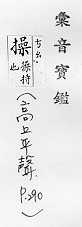 彙音寶鑑
操 操持也
(高上平聲 P.290)